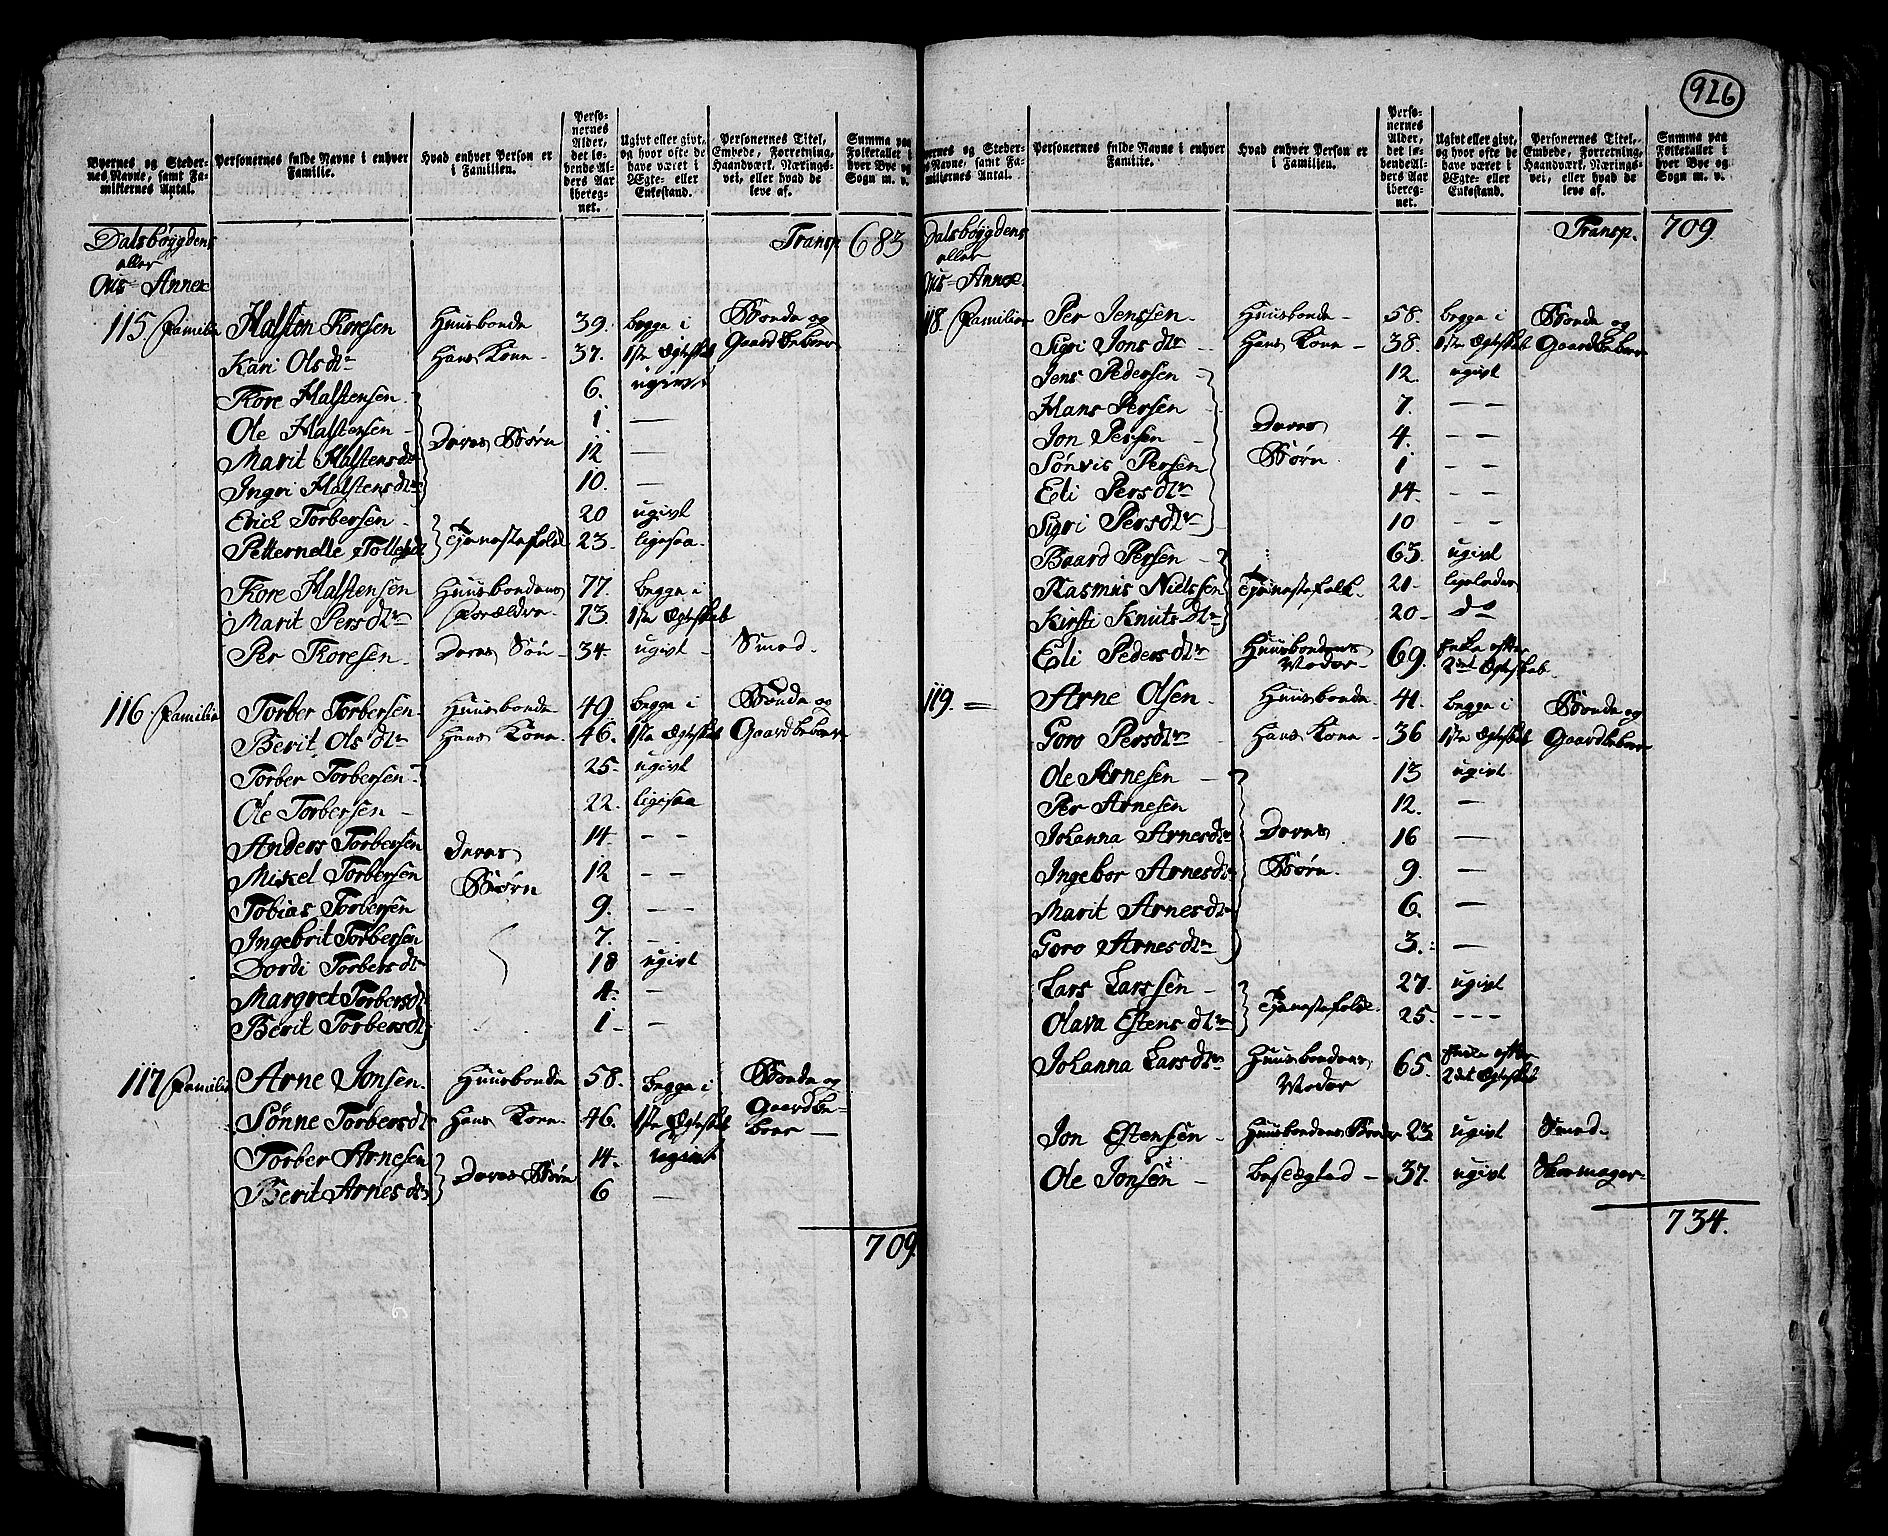 926
Byernes og Stedernes Navne, samt Familiernes Antal.
Personernes fulde Navne i enhver Familie.
Hvad enhver Person er i Familien.
Personernes Alder, det løbende Alders Aar iberegnet.
Ugivt eller givt, og hvor ofte de have været i Ægte- eller Enkestand.
Personernes Titel, Embede, Forretning, Haandværk, Næringsvei, eller hvad de leve af.
Summa paa Folketallet i hver Bye og Sogn m. v.
Dalsbøygdens Transp 683
eller
Ous-Annex
115 Familie Halsten Toresen Huusbonde 39. begge i Bonde og
Kari Olsdtr Hans Kone - 37. 1ste Ægteskab Gaardbeboer
Tore Halstensen 6. ugivt
Ole Halstensen - Deres Børn 1. —
Marit Halstensdr 12 —
Ingri Halstensdtr 10. —
Erich Torbersen - 20 ugivt
Petternelle Tollefsdt Tjenestefolk 23. ligesaa.
Tore Halstensen Huusbondens 77. begge i
Marit Persdtr Forældre. 73. 1ste Ægteskab
Per Toresen - Deres Søn - 34. ugivt - Smed.
116. Familie Torber Torbersen Huusbonde 49 begge i Bonde og
Berit Olsdtr Hans Kone. 46. 1ste Ægteskab Gaardbeboer
Torber Torbersen 25. ugivt
Ole Torbersen - 22. ligesaa
Anders Torbersen Deres 14. — —
Mikel Torbersen Børn 12 — —
Tobias Torbersen 9. — —
Ingebrit Torbersen 7. —
Dordi Torbersdtr 18 ugivt
Margret Torbersdt 4. —
Berit Torbersdt 1 - —
117 Familie Arne Jonsen. Huusbonde 58. begge i Bonde og
Sønne Torbersdt Hans Kone. 46. 1ste Ægteskab Gaardbe-
boer —
Torber Arnesen Deres Børn 14. ugivt
Berit Arnesdtr 6 —
709
Byernes og Stedernes Navne, samt Familiernes Antal.
Personernes fulde Navne i enhver Familie.
Hvad enhver Person er i Familien.
Personernes Alder, det løbende Alders Aar iberegnet.
Ugivt eller givt, og hvor ofte de have været i Ægte- eller Enkestand.
Personernes Titel, Embede, Forretning, Haandværk, Næringsvei, eller hvad de leve af.
Summa paa Folketallet i hver Bye og Sogn m. v.
Dalsbøygdens Transp. 709.
eller
Ous-Annex.
118 Familien Per Jenssen. Huusbonde - 58. begge i Bonde og
Sigri Jonsdtr - Hans Kone - 38. 1ste Ægteskab Gaardbeboer
Jens Pedersen - 12. ugivt
Hans Persen 7. — —
Jon Persen Deres 4. — —
Sønvis Persen Børn. 1 — —
Eli Persdtr 14. — —
Sigri Persdtr 10 — —
Baard Persen - 63. ugivt
Rasmus Nielssen Tjenestefolk. 21. ligeledes
Kirsti Knutsdtr 20 - do
Eli Pedersdtr Huusbondens Moder - 69. Enke efter 2det Ægteskab.
119. = Arne Olsen. Huusbonde. 41. begge i Bonde og
Goro Persdtr Hans Kone - 36 1ste Ægteskab Gaardbeboer
Ole Arnesen - 13 ugivt
Per Arnesen 12. —
Johanna Arnesdtr Deres 16 —
Ingebor Arnesdt Børn. 9. —
Marit Arnesdtr 6. —
Goro Arnesdtr 3. —
Lars Larssen - 27. ugivt
Olava Estensdtr Tjenestefolk. 25. - - -
Johanna Larsdtr Huusbondens Moder 65. Enke efter 2det Ægteskab
Jon Estensen - Huusbondens Broder 23 ugivt Smed.
Ole Jonsen - besøgted - 37. ugivt Skomager-
734.